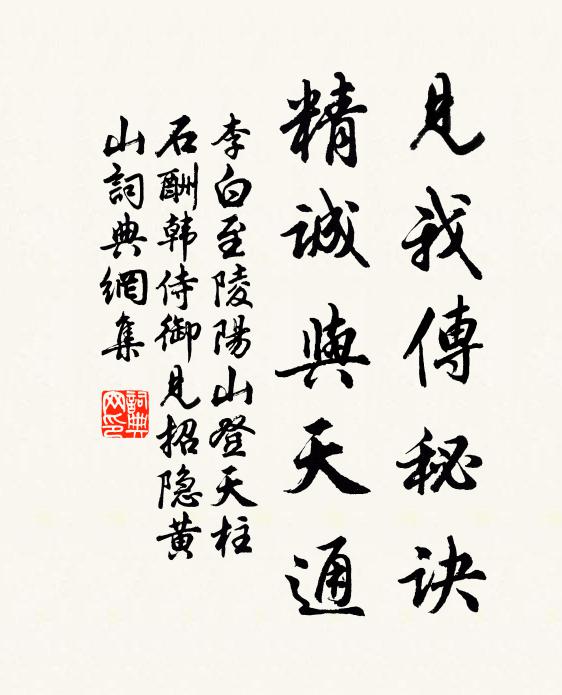 見我傳秘訣
精誠與天通
李白至陵陽山登天柱
石酬韩侍御見招隐黄
山詞典網集
詞典
网印